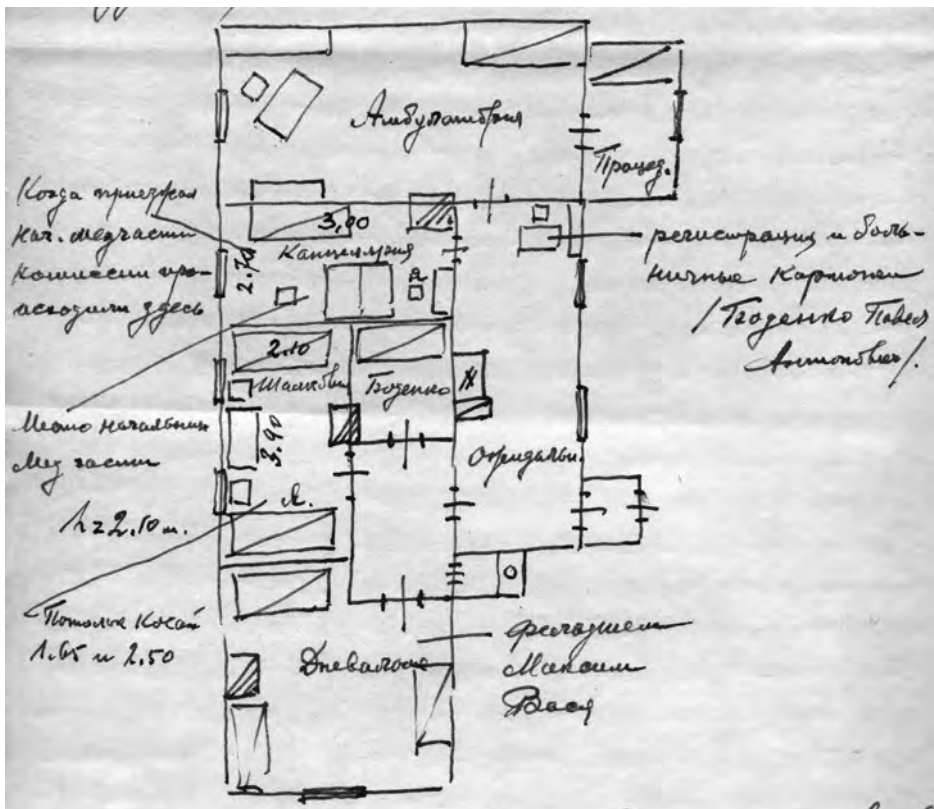 Амбулатория
Процед.
Когда приезжал
нач. медчасти
комиссии про-
исходили здесь
3,90
Канцелярия
2.70
я
регистрация и боль-
ничные карточки
/Боденко Павел
Антонович/.
2.10
Боденко
3.90
Место начальника
Мед части
Ожидальн.
h=2.50 м.
Я.
Потолок косой
1.65 и 2.50
Дневальные
Максим
Вася